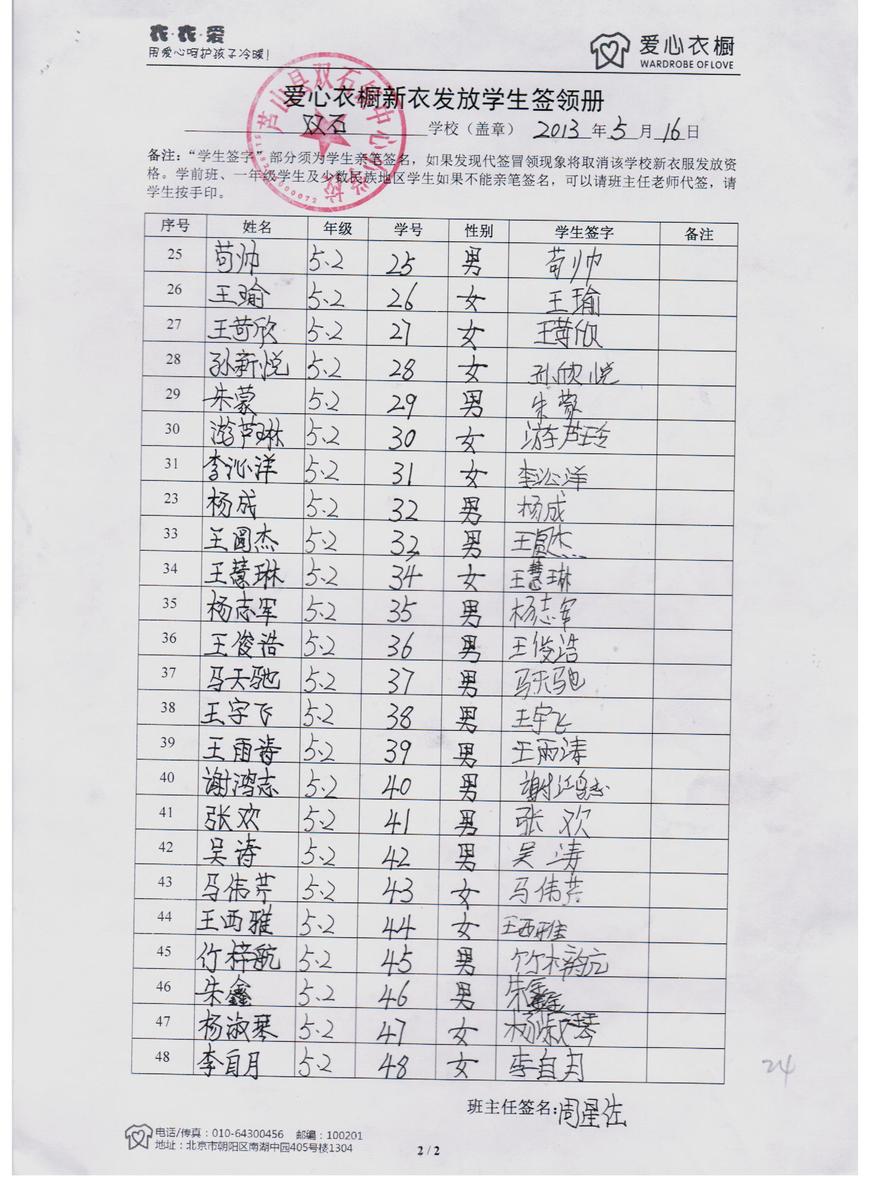 衣·衣·爱
用爱心呵护孩子冷暖!
爱心衣橱
WARDROBE OF LOVE
爱心衣橱新衣发放学生签领册
双石 学校（盖章） 2013 年 5 月 16 日
备注：“学生签字”部分须为学生亲笔签名，如果发现代签冒领现象将取消该学校新衣服发放资
格。学前班、一年级学生及少数民族地区学生如果不能亲笔签名，可以请班主任老师代签，请
学生按手印。
序号 姓名 年级 学号 性别 学生签字 备注
25 苟帅 5.2 25 男 苟帅
26 王瑜 5.2 26 女 王瑜
27 王苛欣 5.2 27 女 王苛欣
28 孙新悦 5.2 28 女 孙欣悦
29 朱蒙 5.2 29 男 朱蒙
30 游芦琳 5.2 30 女 游芦玲
31 李沁洋 5.2 31 女 李沁洋
23 杨成 5.2 32 男 杨成
33 王圆杰 5.2 32 男 王圆杰
34 王慧琳 5.2 34 女 王慧琳
35 杨志军 5.2 35 男 杨志军
36 王俊浩 5.2 36 男 王俊浩
37 马天驰 5.2 37 男 马天驰
38 王字飞 5.2 38 男 王宇飞
39 王雨涛 5.2 39 男 王雨涛
40 谢鸿志 5.2 40 男 谢鸿志
41 张欢 5.2 41 男 张欢
42 吴涛 5.2 42 男 吴涛
43 马伟芹 5.2 43 女 马伟芹
44 王西雅 5.2 44 女 王西雅
45 竹梓航 5.2 45 男 竹梓航
46 朱鑫 5.2 46 男 朱鑫
47 杨淑琴 5.2 47 女 杨淑琴
48 李自月 5.2 48 女 李自月
24
班主任签名:周星佐
电话/传真：010-64300456 邮编：100201
地址：北京市朝阳区南湖中园405号楼1304
2 / 2